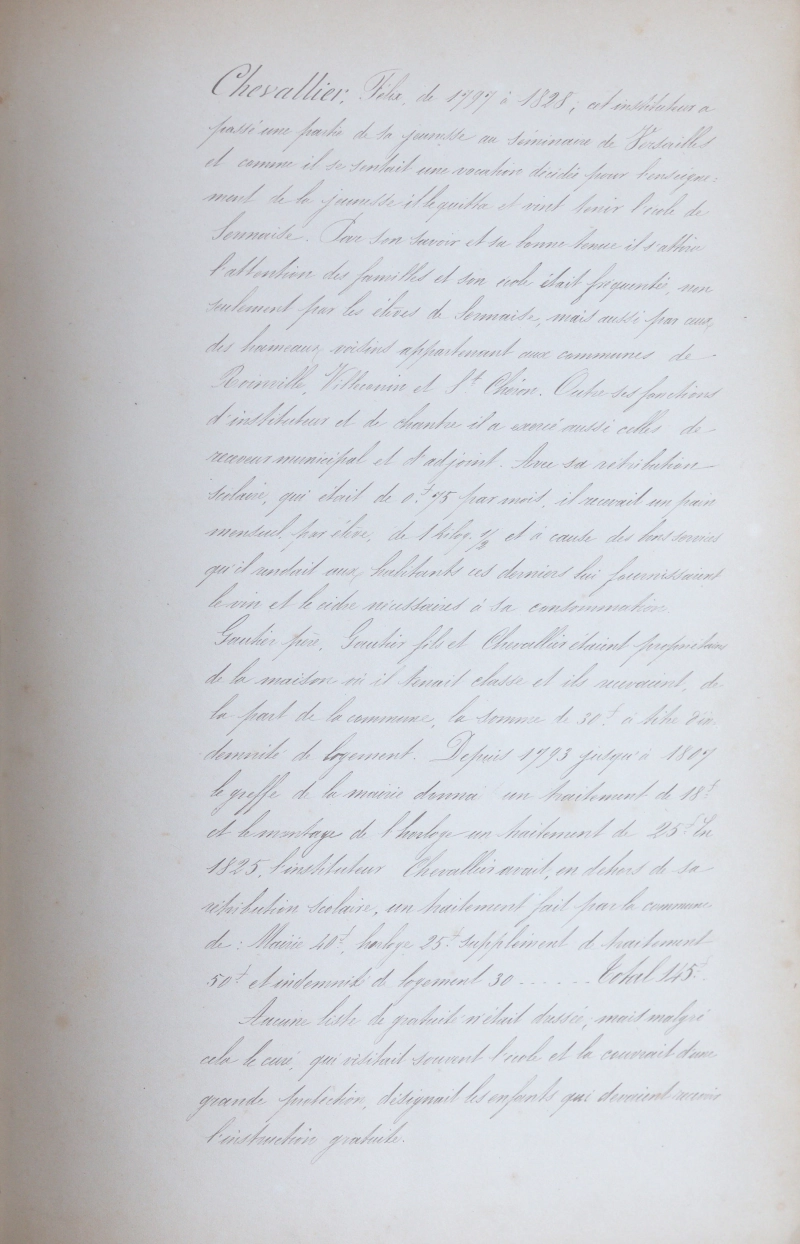 Chevallier, Félix, de 1797 à 1828; cet instituteur a
passé une partie de sa jeunesse au séminaire de Versailles
et comme il se sentait une vocation décidée pour l'enseigne:
ment de la jeunesse il le quitta et vint tenir l'école de
Sermaise. Par son savoir et sa bonne tenue il s'attira
l'attention des familles et son école était fréquentée, non
seulement par les élèves de Sermaise, mais aussi par ceux,
des hameaux, voisins appartenant aux communes de
Roinville, Villeconin et St. Chéron. Outre ses fonctions
d'instituteur et de chantre il a exercé aussi celles de
receveur municipal et d'adjoint. Avec sa rétribution
scolaire, qui était de 0.f 75 par mois, il recevait un pain
mensuel, par élève, de 1 kilog. 1/2 et à cause des bons services
qu'il rendait aux, habitants ces derniers lui fournissaient
le vin et le cidre nécessaires à sa consommation.
Gautier père, Gautier fils et Chevallier étaient propriétaires
de la maison où il tenait classe et ils recevaient, de
la part de la commune, la somme de 30.f à titre d'in
demnité de logement. Depuis 1793 jusqu'à 1807
le greffe de la mairie donna un traitement de 18.f
et le montage de l'horloge un traitement de 25.f En
1825, l'instituteur Chevallier avait, en dehors de sa
rétribution scolaire, un traitement fait par la commune
de: Mairie 40.f, horloge 25.f supplément de traitement
50.f et indemnité de logement 30 ...... Total 145.f.
Aucune liste de gratuité n'était dressée, mais malgré
cela le curé, qui visitait souvent l'école et la couvrait d'une
grande protection, désignait les enfants qui devaient recevoir
l'instruction gratuite.